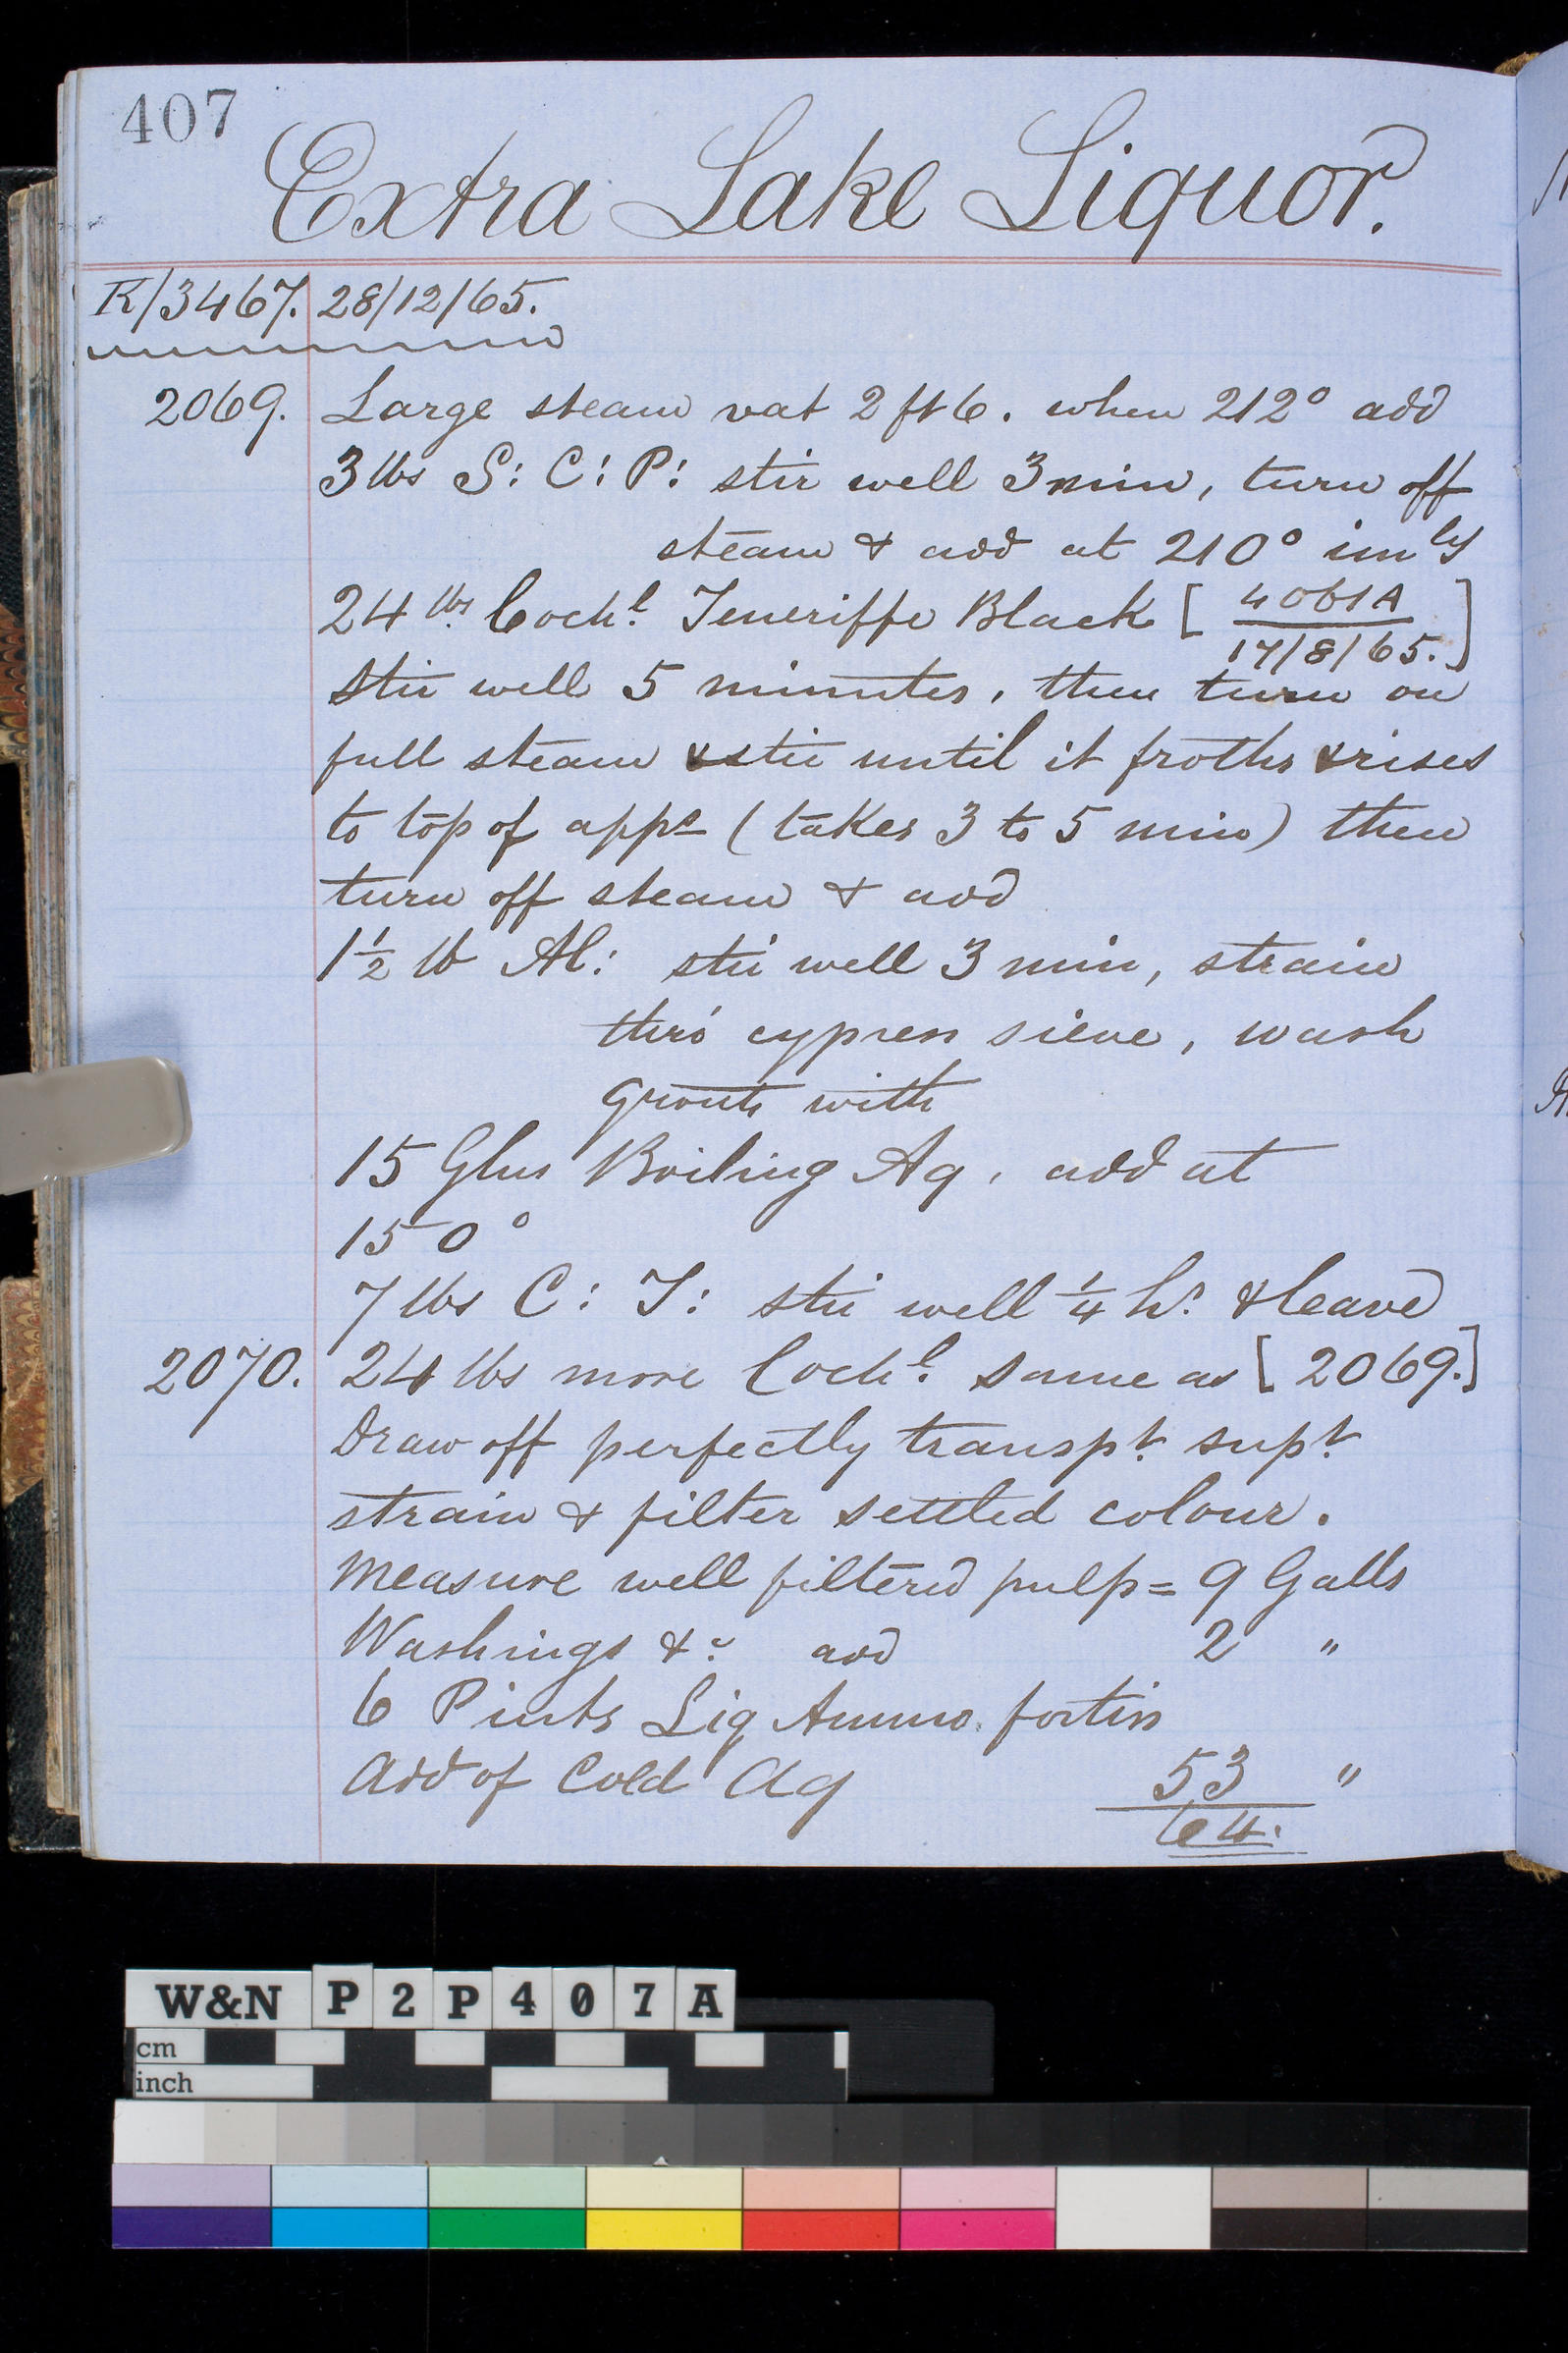 407
Extra Lake Liquor.
K/3467. 28/12/65.
2069. Large steam vat 2 ft 6. when 212° add
3 lbs S: C: P: stir well 3 min, turn off
steam & add at 210° imly
24 lbs Cochl Teneriffe Black [4061A
17/8/65.]
stir well 5 minutes, then turn on
full steam & stir until it froths & rises
to top of apps (takes 3 to 5 min) then
turn off steam & add
1½ lb Al: stir well 3 min, strain
thro' cypress sieve, wash
grouts with
15 Glns Boiling Aq, add at
150°
7 lbs C: T: stir well ¼ hr & leave
2070. 24 lbs more Cochl same as [2069.]
Draw off perfectly transpt supt
strain & filter settled colour.
Measure well filtered pulp = 9 Galls
Washings &c add 2 "
6 Pints Liq Ammo. fortiss
Add of Cold Aq 53 "
64.
W&N P2P407A
cm
inch